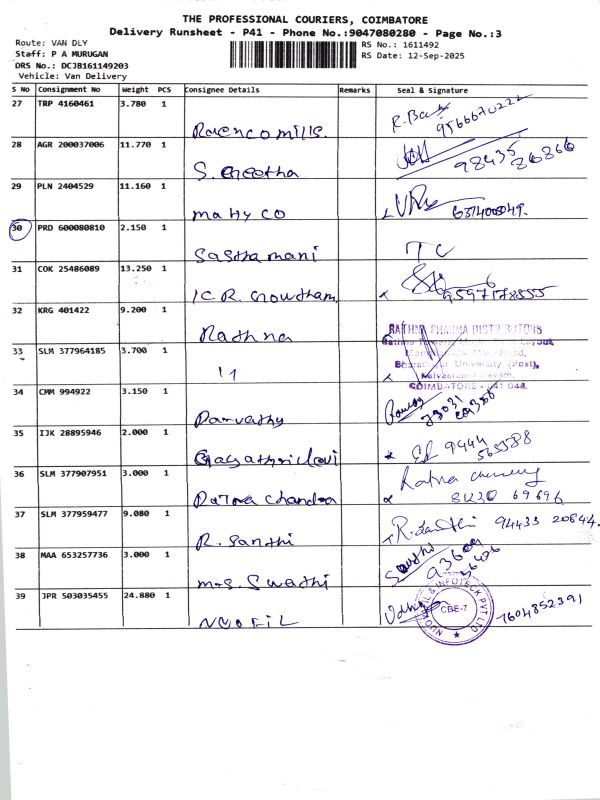 THE PROFESSIONAL COURIERS, COIMBATORE
Delivery Runsheet - P41 - Phone No.:9047080280 - Page No.:3
Route: VAN DLY
RS No.: 1611492
Staff: P A MURUGAN
RS Date: 12-Sep-2025
DRS No.: DCJB161149203
Vehicle: Van Delivery
S No Consignment No Weight PCS Consignee Details Remarks Seal & Signature
27 TRP 4160461 3.780 1
9566670222
28 AGR 200037006 11.770 1
S. Geetha 98435 86866
29 PLN 2404529 11.160 1
Mahyco
30 PRD 600080810 2.150 1
Sasthamani TC
31 COK 25486089 13.250 1
K.R. Gowtham
32 KRG 401422 9.200 1
Rathna
RATHNA PHARMA DISTRIBUTORS
33 SLM 377964185 3.700 1
University (Post),
COIMBATORE - 641 046.
34 CMM 994922 3.150 1
Parvathy
35 IJK 28895946 2.000 1
Gayathridevi 9444
36 SLM 377907951 3.000 1
Ratna chandra 69696
37 SLM 377959477 9.080 1
R. Santhi 94433 20844
38 MAA 653257736 3.000 1
Mrs. Swathi
39 JPR 503035455 24.880 1
7604852391
CBE-7